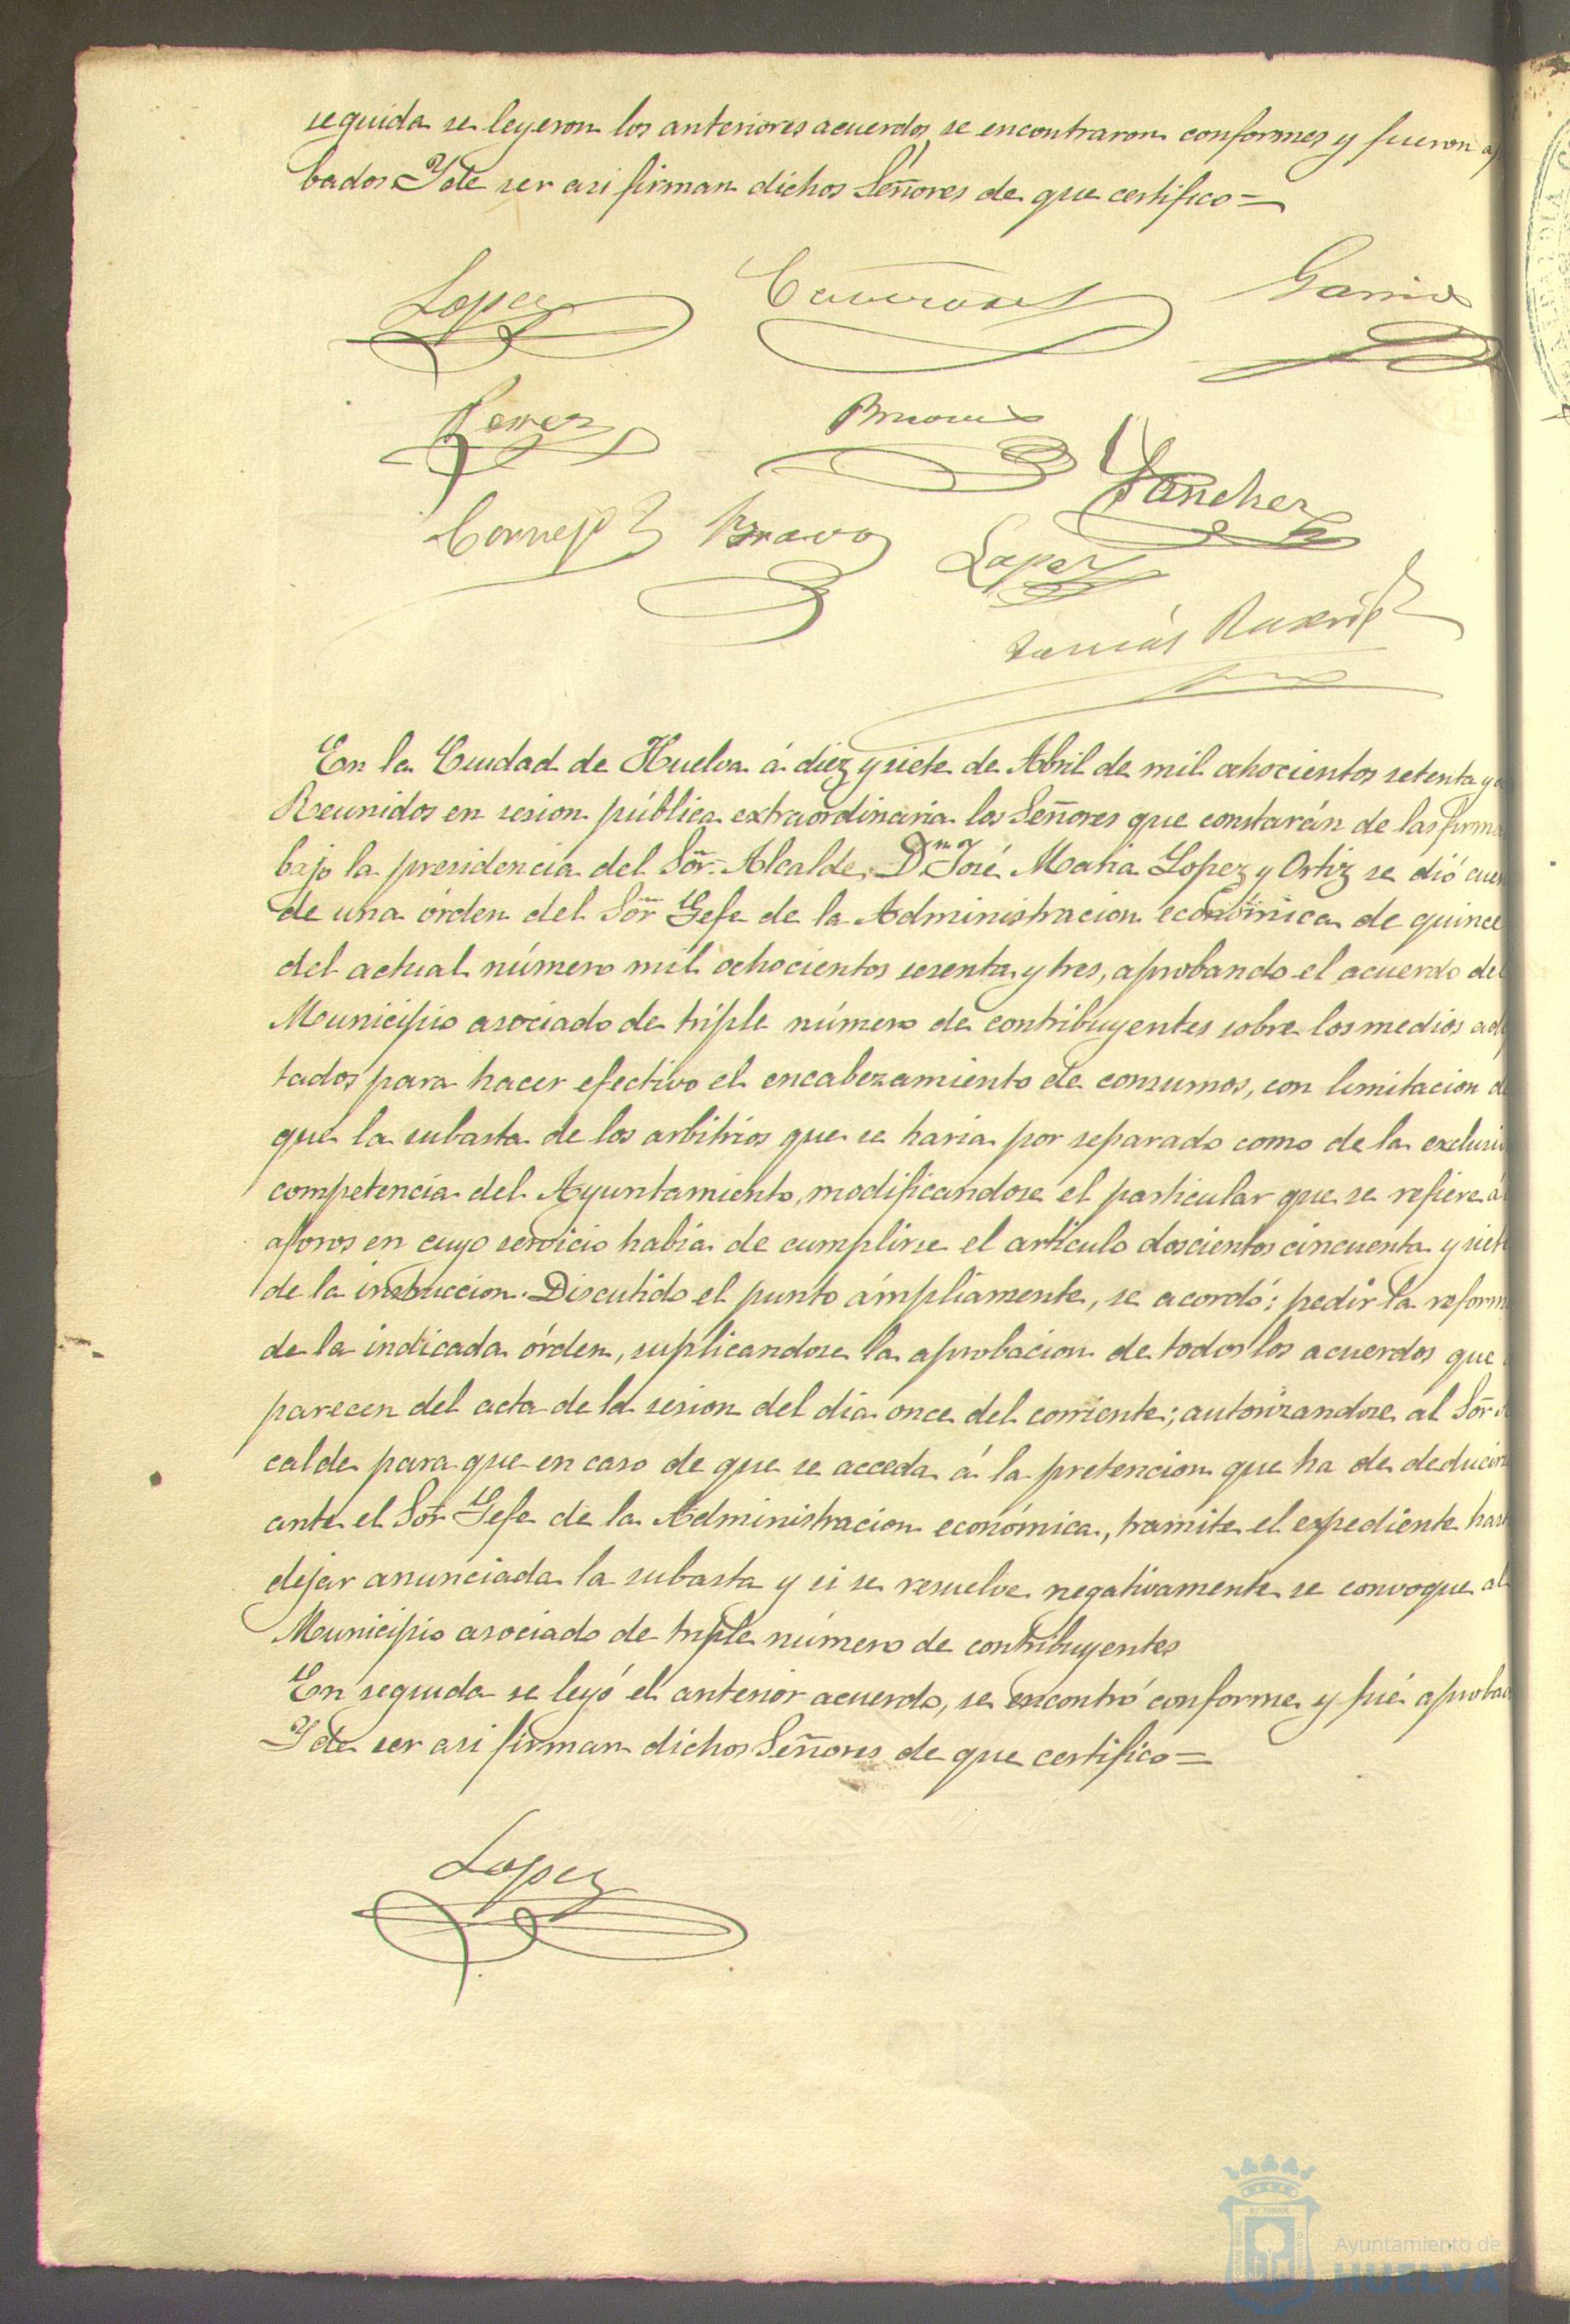 seguida se leyeron los anteriores acuerdos, se encontraron conformes y fueron ap
bados Y de ser asi firman dichos Señores de que certifico =
Lopez
Garcia
Perez
Sanchez
Cornejo Bravo Lopez
Tomás
En la Ciudad de Huelva á diez y siete de Abril de mil ochocientos setenta y
Reunidos en sesion pública extraordinaria los Señores que constarán de las firma
bajo la presidencia del Sôr. Alcalde, D.n José Maria Lopez y Ortiz se dió cuen
de una órden del Sôr Gefe de la Administracion económica de quince
del actual número mil ochocientos sesenta y tres, aprobando el acuerdo del
Municipio asociado de triple número de contribuyentes sobre los medios adp
tados para hacer efectivo el encabezamiento de consumos, con limitacion d
que la subasta de los arbitrios que se haria por separado como de la exclusi
competencia del Ayuntamiento, modificandose el particular que se refiere á
aforos en cuyo servicio habia de cumplirse el artículo doscientos cincuenta y siete
de la instruccion. Discutido el punto ámpliamente, se acordó: pedir la reform
de la indicada órden, suplicandose la aprobacion de todos los acuerdos que
parecen del acta de la sesion del dia once del corriente; autorizandose al Sôr
calde para que en caso de que se acceda á la pretencion que ha de deducir
ante el Sôr Gefe de la Administracion económica, tramite el expediente has
dejar anunciada la subasta y si se resuelve negativamente se convoque al
Municipio asociado de triple número de contribuyentes
En seguida se leyó el anterior acuerdo, se encontró conforme y fué aproba
Y de ser asi firman dichos Señores de que certifico =
Lopez
Ayuntamiento de
HUELVA